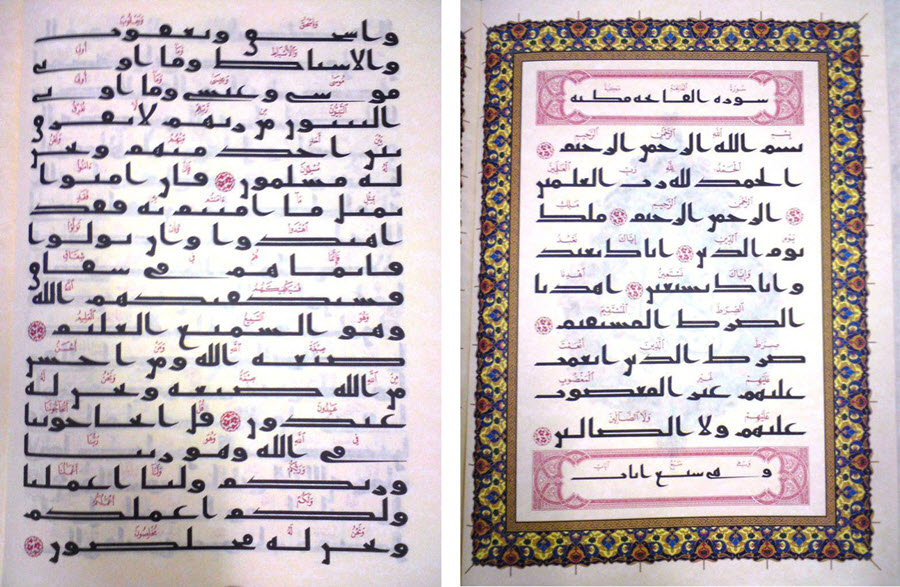 سورة الفاتحة مكية
بسم الله الرحمن الرحيم
الحمد لله رب العلمين
الرحمن الرحيم ملك
يوم الدين اياك نعبد
واياك نستعين اهدنا
الصرط المستقيم
صرط الذين انعمت
عليهم غير المغضوب
عليهم ولا الضالين
وهي سبع ايات
واسحق ويعقوب
والاسباط وما اوتي
موسى وعيسى وما اوتي
النبيون من ربهم لا نفرق
بين احد منهم ونحن
له مسلمون فان امنوا
بمثل ما امنتم به فقد
اهتدوا وان تولوا
فانما هم في شقاق
فسيكفيكهم الله
وهو السميع العليم
صبغة الله ومن احسن
من الله صبغة ونحن له
عبدون قل اتحاجوننا
في الله وهو ربنا
وربكم ولنا اعملنا
ولكم اعملكم
ونحن له مخلصون